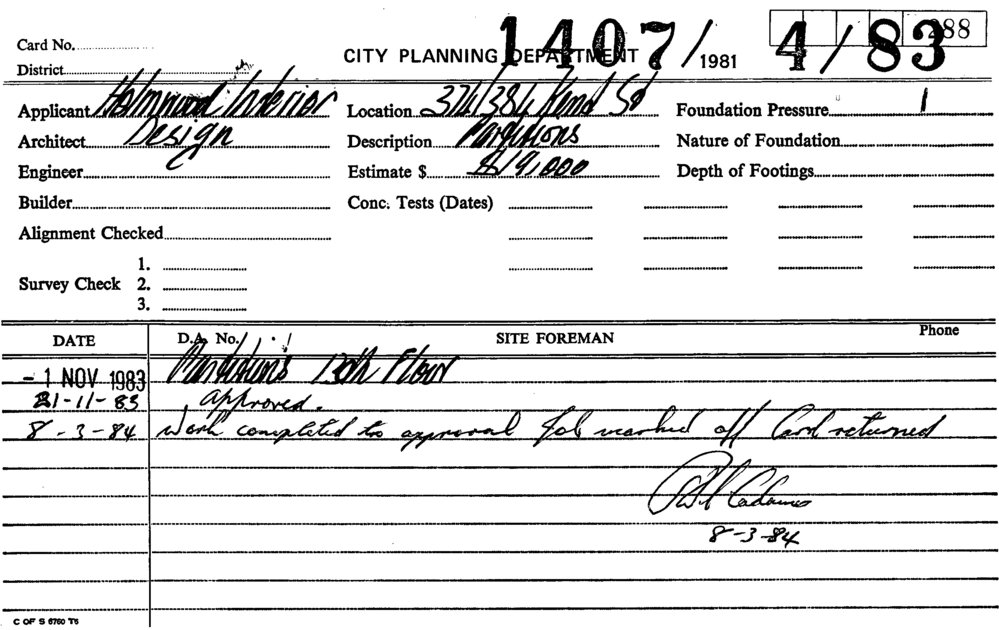 Card No.
CITY PLANNING DEPARTMENT 1407/1981 4/83 288
District
Applicant Holmwood Interior Location 374/386 Kent St Foundation Pressure
Architect Design Description Partitions Nature of Foundation
Engineer Estimate $ $19,000 Depth of Footings
Builder Conc. Tests (Dates)
Alignment Checked
1.
Survey Check 2.
3.
DATE D.A. No. SITE FOREMAN Phone
- 1 NOV 1983 Partitions 13th Floor
21-11-83 approved.
8-3-84 Work completed to approval Job marked off Card returned
Adams
8-3-84
C OF S 6760 T6